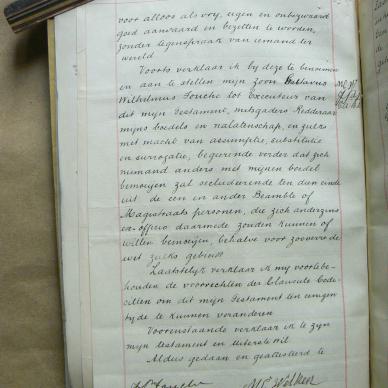 voor altoos als vry, eigen en onbezwaard
goed aanvaard en bezeten te worden,
zonder tegenspraak van iemand ter
wereld
Voorts verklaar ik by deze te benoemen
en aan te stellen mijn zoon Gustavus
Wilhelmus tot Executeur van
dit mijn testament, mitsgaders Redderaar
mijns boedels en nalatenschap, en zulks
met macht van assumptie, substitutie
en surrogatie, begeerende verder dat zich
niemand anders met mijnen boedel
bemoeijen zal secludeerende ten dien einde
uit de een en ander Beambte of
Magistraats personen, die zich anderzins
ex-officio daarmede zouden kunnen of
willen bemoeijen, behalve voor zooverre de
wet zulks gebiedt
Laatstelijk verklaar ik my voorte be-
houden de voorrechten der Clausule Codi-
cillair om dit mijn testament ten eenigen
tyde te kunnen veranderen
Voorenstaande verklaar ik te zyn
myn testament en uiterste wil
Aldus gedaan en gepasseerd te